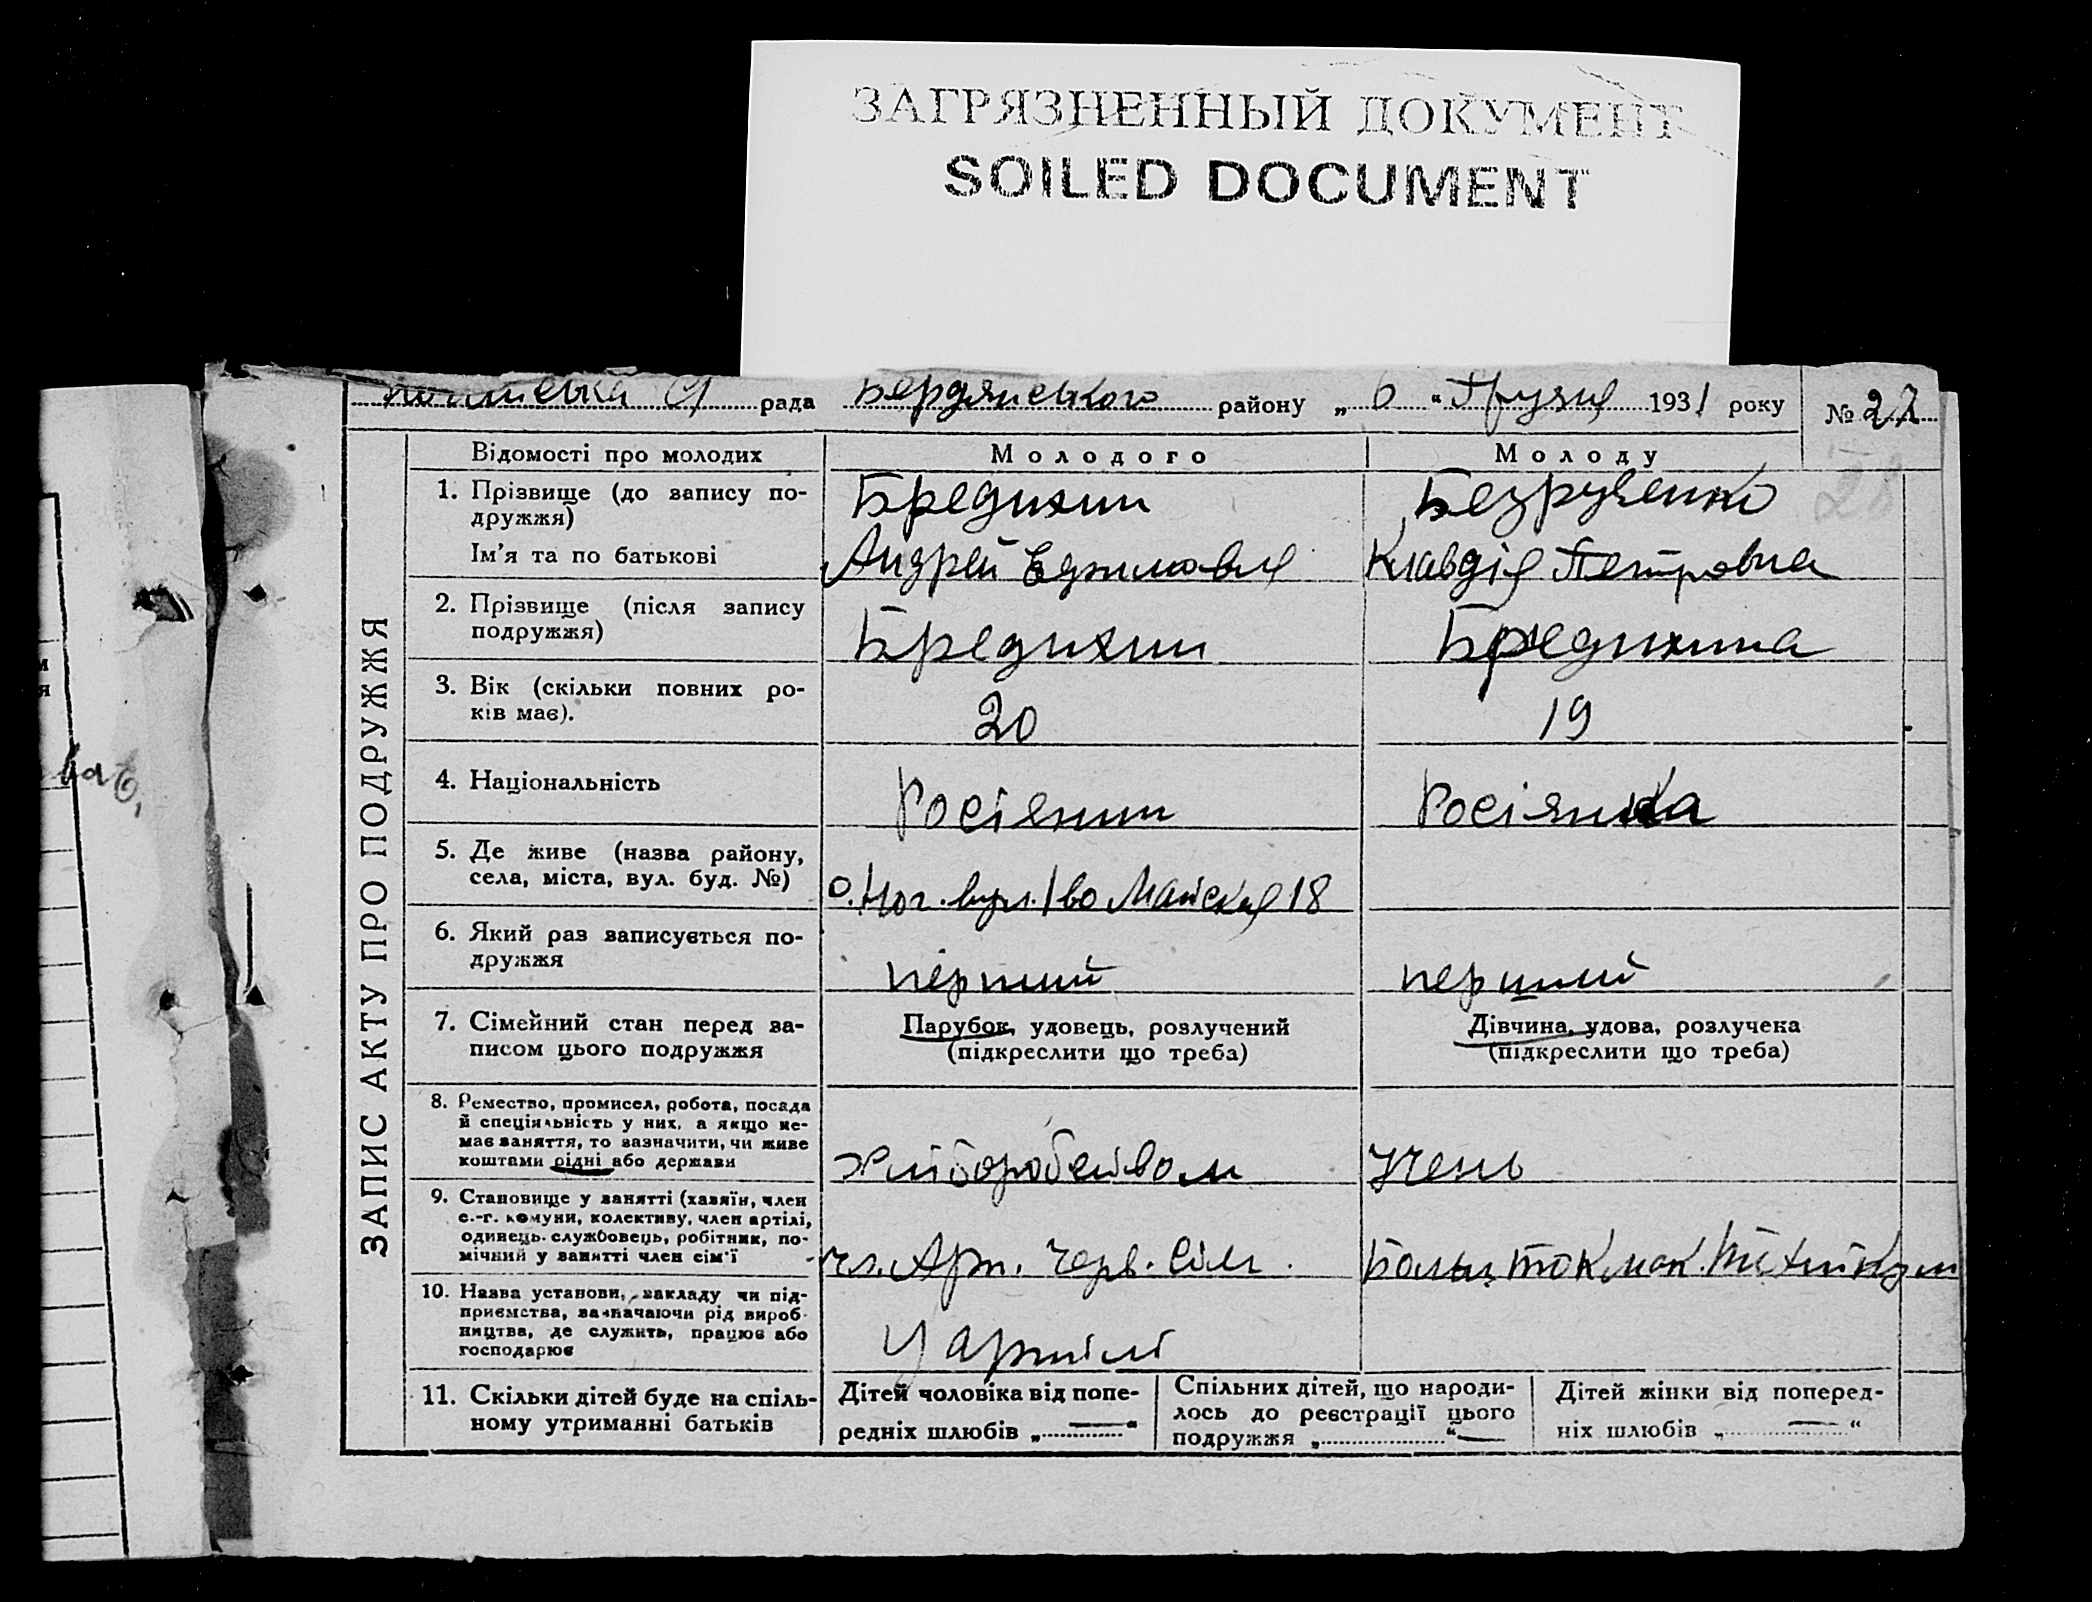 ЗАГРЯЗНЕННЫЙ ДОКУМЕНТ
SOILED DOCUMENT
рада Бердянського району „ 6 “ Грудня 1931 року № 27
28
ЗАПИС АКТУ ПРО ПОДРУЖЖЯ
Відомості про молодих Молодого Молоду
1. Прізвище (до запису по-
дружжя) Бредихин Безрученко
Ім'я та по батькові Андрей Клавдія Петровна
2. Прізвище (після запису
подружжя) Бредихин Бредихина
3. Вік (скільки повних ро-
ків має). 20 19
4. Національність Росіянин Росіянка
5. Де живе (назва району,
села, міста, вул. буд. №) о. Ног. вул. 1во Майская 18
6. Який раз записується по-
дружжя перший перший
7. Сімейний стан перед за-
писом цього подружжя
Парубок, удовець, розлучений
(підкреслити що треба)
Дівчина, удова, розлучена
(підкреслити що треба)
8. Ремество, промисел, робота, посада
й спеціяльність у них, а якщо не-
має заняття, то зазначити, чи живе
коштами рідні або держави
Учень
9. Становище у занятті (хазяїн, член
с.-г. комуни, колективу, член артілі,
одинець-службовець, робітник, по-
мічний у занятті член сім'ї
чл. Арт. Черв. Сіл.
Больш. Токмак.
10. Назва установи, закладу чи під-
приємства, зазначаючи рід вироб-
ництва, де служить, працює або
господарює
У артілі
11. Скільки дітей буде на спіль-
ному утриманні батьків
Дітей чоловіка від попе-
редніх шлюбів „ — “
Спільних дітей, що народи-
лось до реєстрації цього
подружжя „ “ —
Дітей жінки від поперед-
ніх шлюбів „ — “